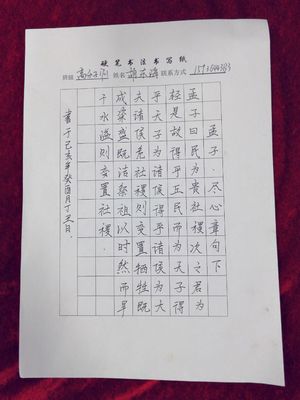 硬笔书法书写纸
班级 姓名 联系方式
孟子·尽心章句下
孟子曰民为贵社稷次之君为
轻是故得乎丘民而为天子得
乎天子为诸侯得乎诸侯为大
夫诸侯危社稷则变置牺牲既
成粢盛既洁祭祀以时然而旱
干水溢则变置社稷.
书于己亥年癸酉月丁丑日.